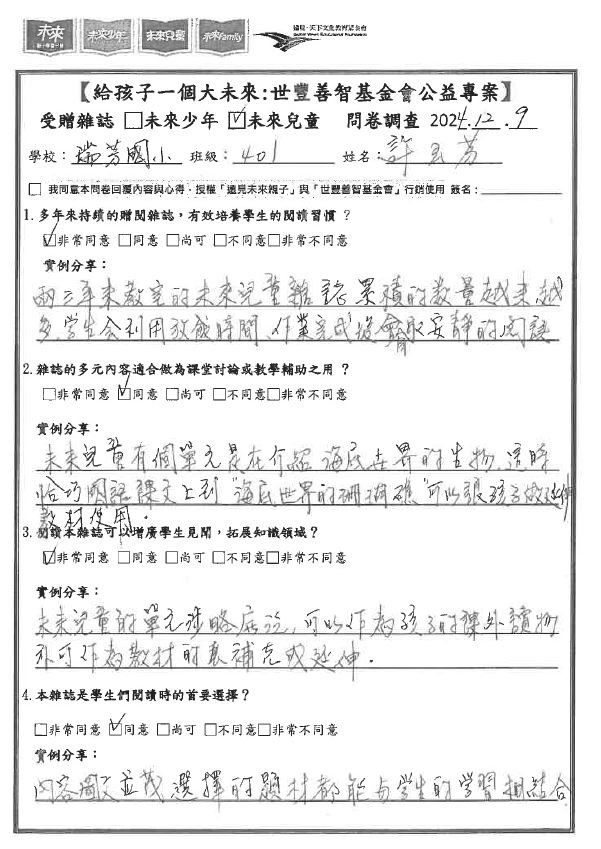 未來
未來少年
未來兒童
未來Family
遠見‧天下文化教育基金會
【給孩子一個大未來:世豐善智基金會公益專案】
受贈雜誌 □未來少年 ☑未來兒童 問卷調查 2024.12.9
學校: 瑞芳國小 班級: 401 姓名: 許玉芬
□ 我同意本問卷回覆內容與心得,授權「遠見未來親子」與「世豐善智基金會」行銷使用 簽名:
1.多年來持續的贈閱雜誌,有效培養學生的閱讀習慣?
☑非常同意 □同意 □尚可 □不同意□非常不同意
實例分享:
兩三年來教室的未來兒童雜誌累積的數量越來越
多,學生會利用放餐時間、作業完成後會取安靜的閱讀
2.雜誌的多元內容適合做為課堂討論或教學輔助之用?
□非常同意 ☑同意 □尚可 □不同意□非常不同意
實例分享:
未來兒童有個單元是在介紹海底世界的生物,這時
恰巧國語課文上到"海底世界的珊瑚礁"可以讓孩子做延伸
教材使用.
3.閱讀本雜誌可以增廣學生見聞,拓展知識領域?
☑非常同意 □同意 □尚可 □不同意□非常不同意
實例分享:
未來兒童的單元涉略廣泛,可以作為孩子的課外讀物
亦可作為教材的補充或延伸.
4.本雜誌是學生們閱讀時的首要選擇?
□非常同意 ☑同意 □尚可 □不同意□非常不同意
實例分享:
內容圖文並茂選擇的題材都能與學生的學習相結合